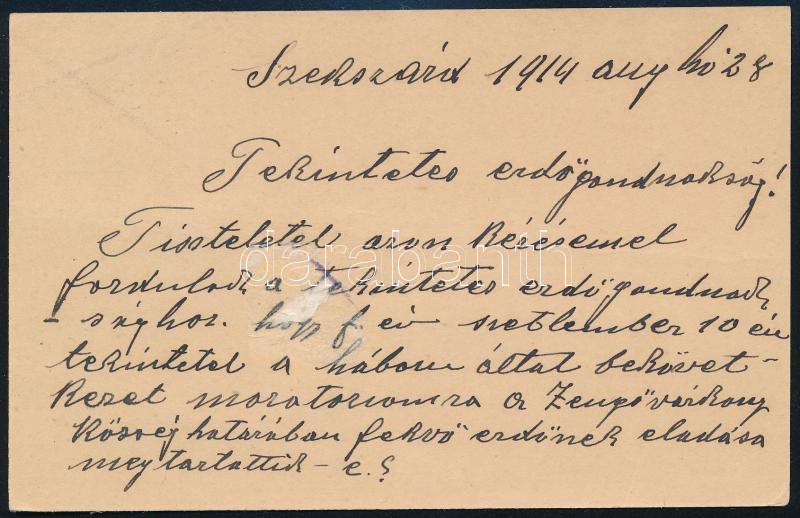 Szekszárd 1914 aug hó 28
Tekintetes erdőgondnokság!
Tisteletel azon kérésemel
fordulok a tekintetes erdőgondnok
- sághoz. hogy f. év szetlember 10 én
tekintetel a háboru által bekövet-
kezet moratoriomra a Zengővárkony
község határában fekvő erdőnek eladása
megtartattik - e.?
darabanth